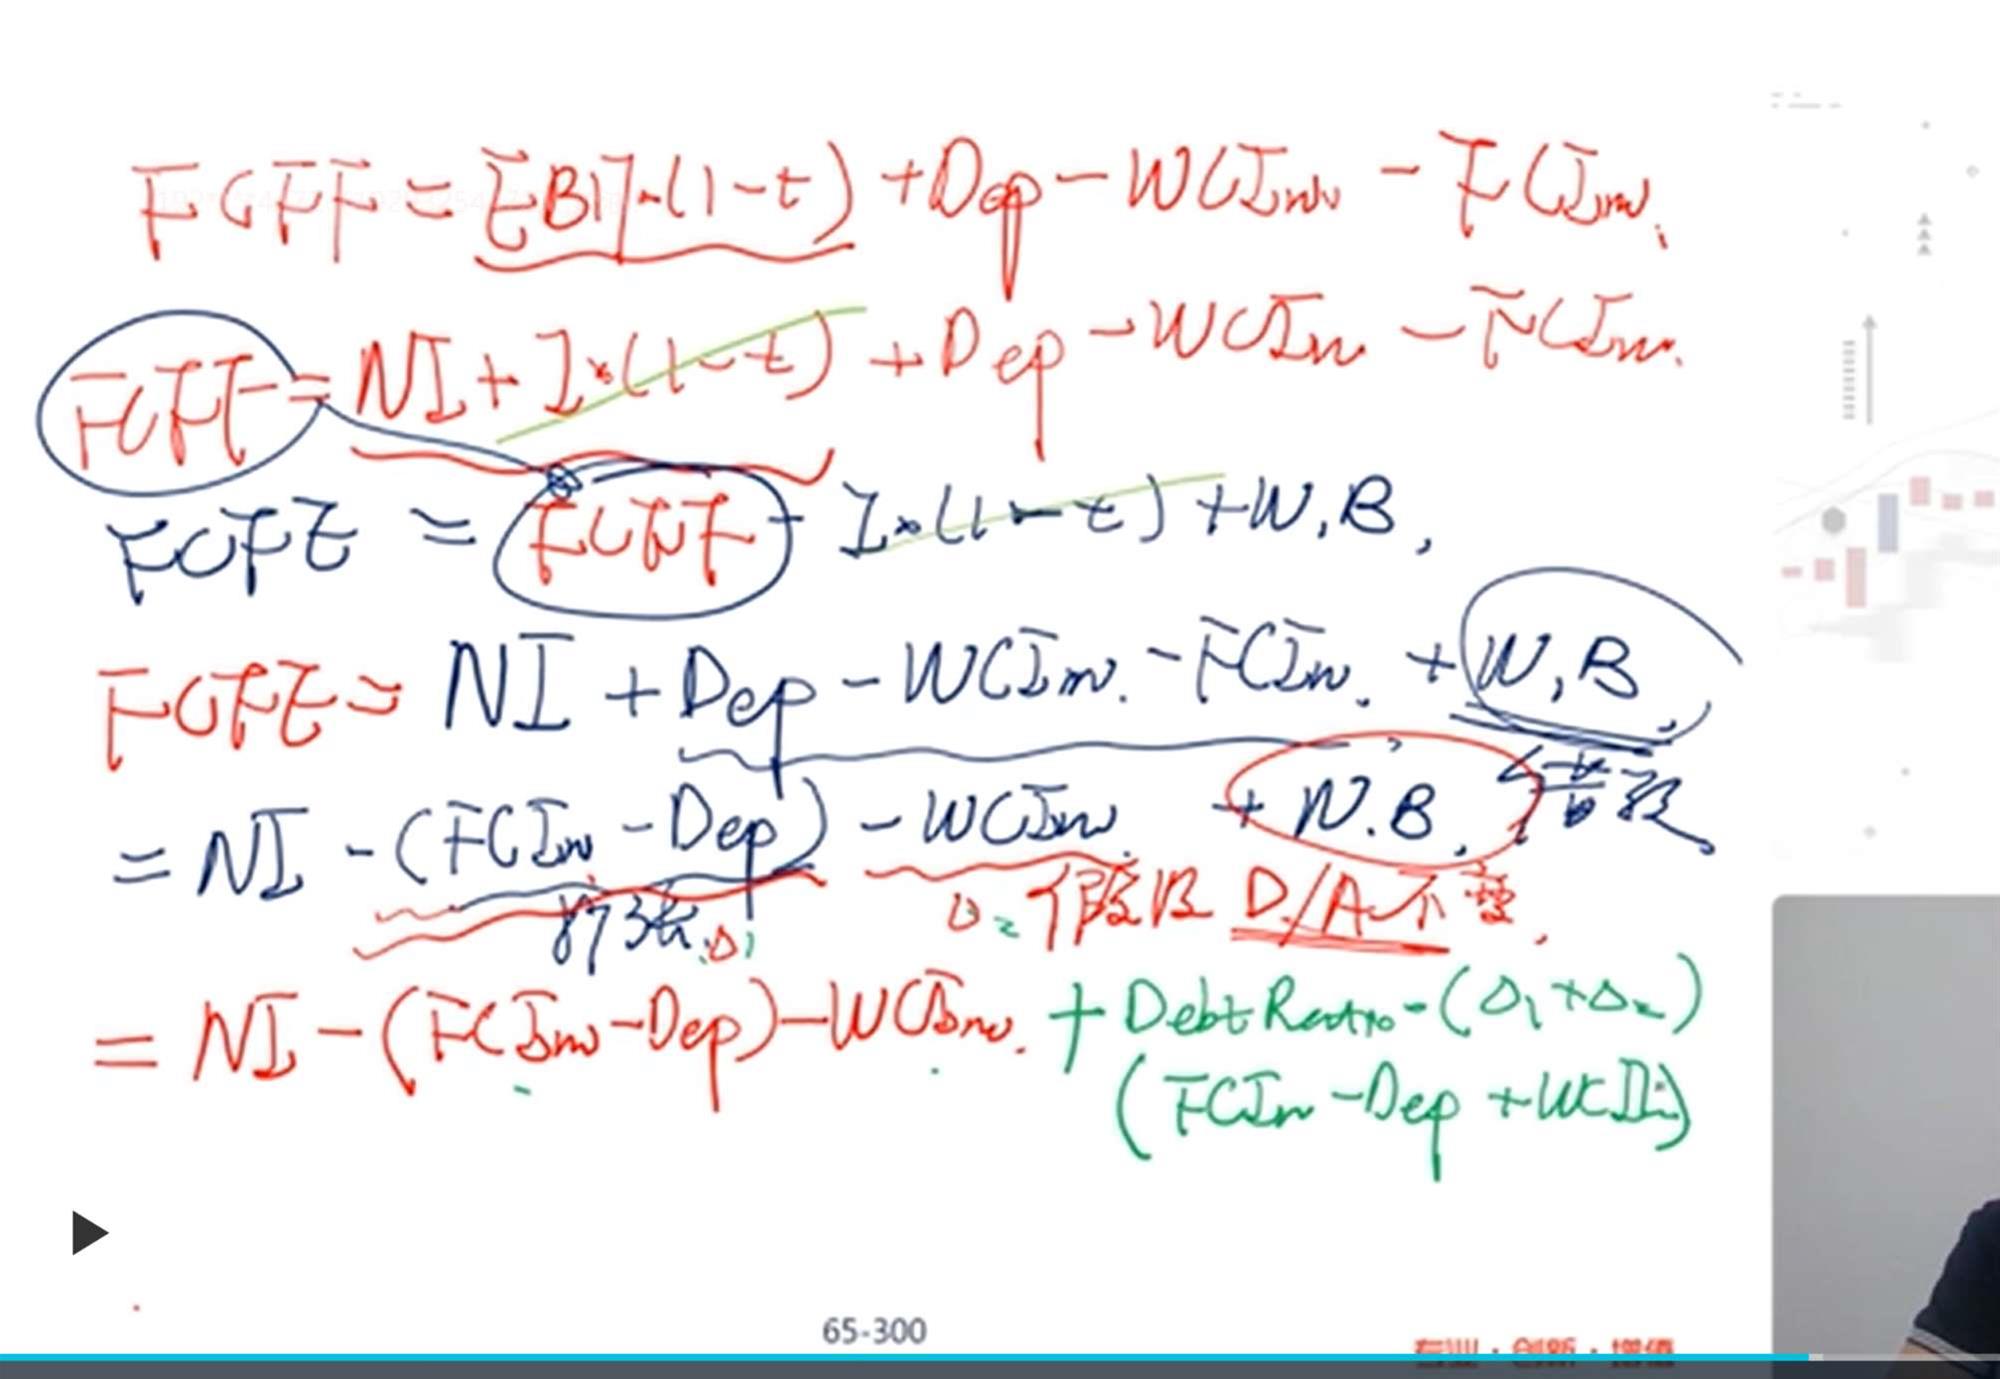 FCFF = EBIT·(1-t) + Dep - WCInv - FCInv.
FCFF = NI + I×(1-t) + Dep - WCInv - FCInv.
FCFE = FCFF - I×(1-t) + N.B.
FCFE = NI + Dep - WCInv. - FCInv. + N.B.
= NI - (FCInv - Dep) - WCInv. + N.B.
Δ1
Δ2 假设 D/A 不变.
= NI - (FCInv - Dep) - WCInv. + Debt Ratio·(Δ1+Δ2)
(FCInv - Dep + WCInv)
65-300
专业·创新·增值